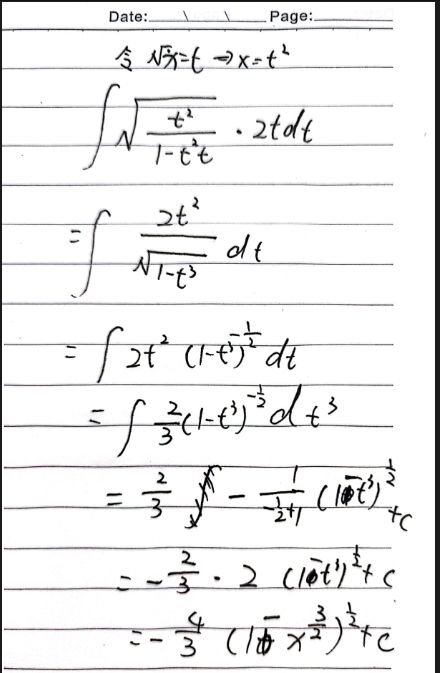 Date:____\____\____ Page:________
令 √x=t ⇒ x=t²
∫ √(t²/(1-t²t)) · 2tdt
= ∫ 2t²/√(1-t³) dt
= ∫ 2t² (1-t³)^(-1/2) dt
= ∫ 2/3 (1-t³)^(-1/2) d t³
= 2/3 - 1/(-1/2+1) (1-t³)^(1/2) +c
= - 2/3 · 2 (1-t³)^(1/2) + c
= - 4/3 (1-x^(3/2))^(1/2) + c